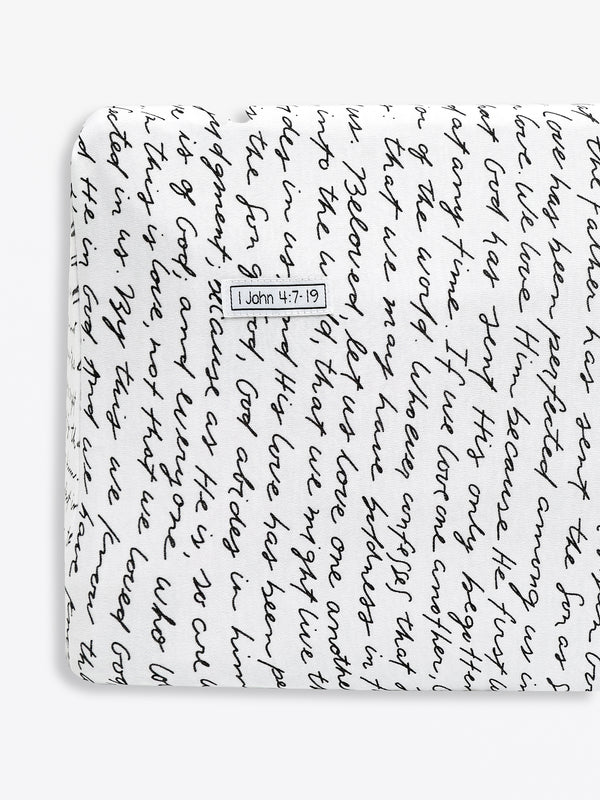 1 John 4:7-19
the father has sent the Son as
love has been perfected among us in
love. We love Him because He first
God has sent His only begotten
at any time. If we love one another,
of the world. Whoever confesses that
that we may have boldness in
us. Beloved, let us love one
into the that we might live
in us, His love has been
the Son God abides in him
judgment; because as He is, so are
is of God, and everyone who
this is love, not that we loved God
in us. By this we know
He in God. And we have